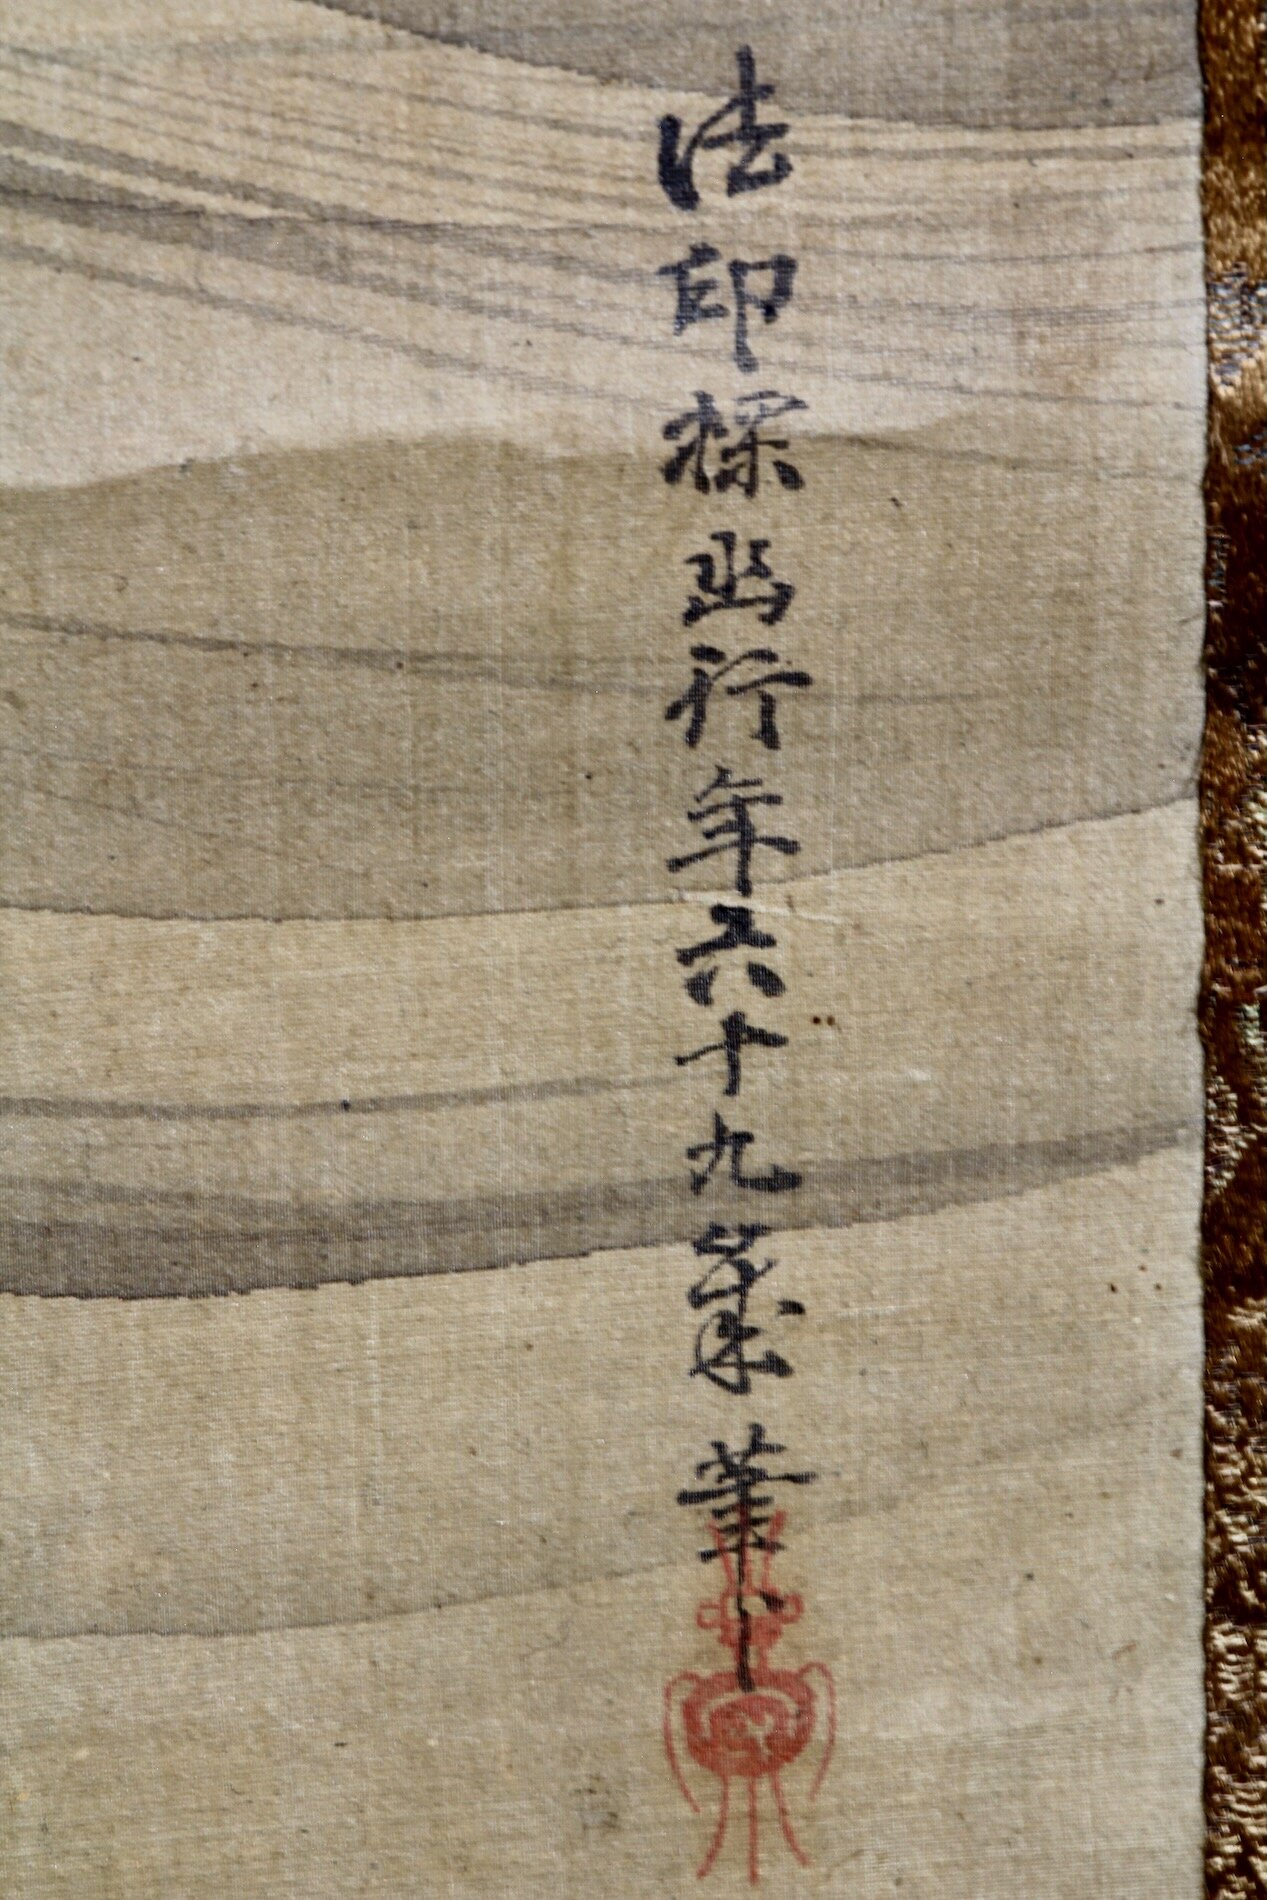 法印探幽行年六十九歳筆